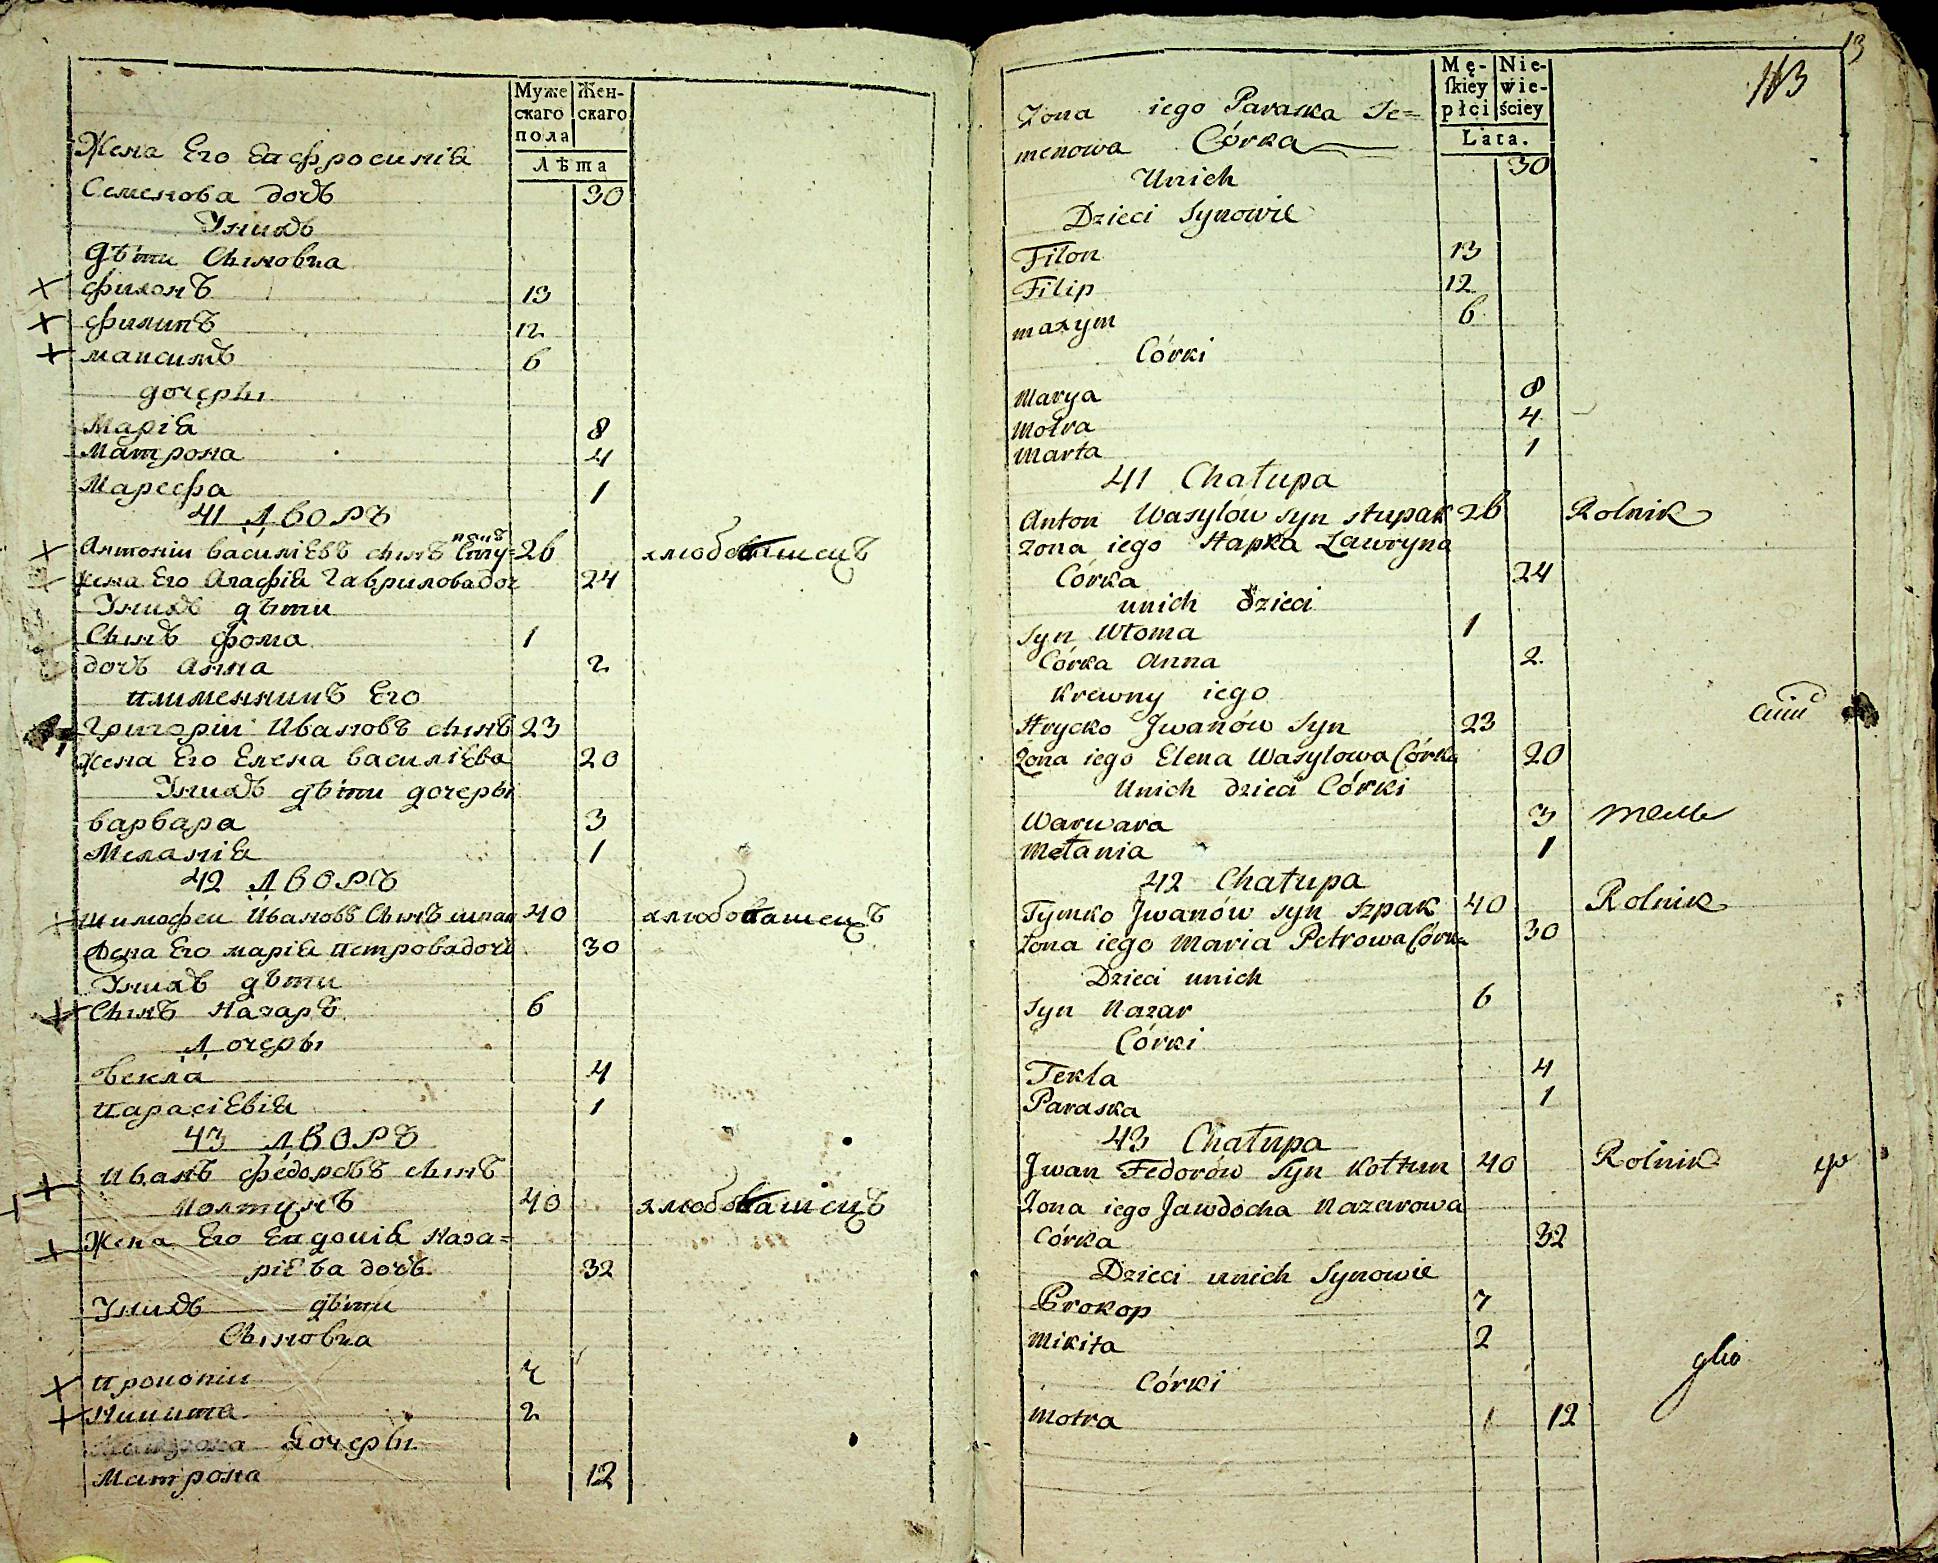 Муже
скаго
пола
Жен-
скаго
Лѣта
Жена Его Епфросинія
Семенова дочь 30
Унихъ
Дѣти Сыновья
Филонъ 13
Филипъ 12
Максимъ 6
дочеры
Марія 8
Матрона 4
Марефа 1
41 Дворъ
Антоніи Василіевъ сынъ Ступакъ 26 хлебопашецъ
Жена Его Агафія Гавриловадоч 24
Унихъ дѣти
Сынъ Фома 1
дочь Анна 2
племенникъ Его
Григоріи Ивановъ сынъ 23
Жена Его Елена Василіева 20
Унихъ дѣти дочеры
Варвара 3
Меланія 1
42 Дворъ
Тимофеи Ивановъ Сынъ шпак 40 хлебопашецъ
Жена Его Марія Петровадочь 30
Унихъ дѣти
Сынъ Назаръ 6
Дочеры
Ѳекла 4
Парасіевія 1
43 Дворъ
Иванъ Федоровъ сынъ
Колтунъ 40 хлебопашецъ
Жена Его Евдокія Наза=
ріева дочь 32
Унихъ дѣти
Сыновья
Прокопіи 7
Никита 2
Матрона Дочеры
Матрона 12
13
113
Mę-
skiey
płci
Nie-
wie-
ściey
Lata.
Zona iego Paraska Se=
menowa Córka 30
Unich
Dzieci Synowie
Filon 13
Filip 12
maxym 6
Córki
Marya 8
Motra 4
Marta 1
41 Chałupa
Anton Wasylów syn stupak 26 Rolnik
zona iego Hapka Ławryna
Córka 24
unich dzieci
syn Wtoma 1
Córka Anna 2
Krewny iego
Hrycko Jwanów Syn 23
Zona iego Elena Wasylowa Córka 20
Unich dzieci Córki
Warwara 3
Mełania 1
42 Chałupa
Tymko Jwanów syn szpak 40 Rolnik
zona iego Maria Petrowa Córka 30
Dzieci unich
Syn Nazar 6
Córki
Tekla 4
Paraska 1
43 Chałupa
Jwan Fedorów Syn Kołtun 40 Rolnik
Zona iego Jawdocha Nazarowa
Córka 32
Dzieci unich Synowie
Prokop 7
Mikita 2
Córki
Motra 12